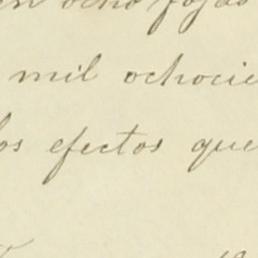 en ocho fojas
mil ochocie
los efectos que